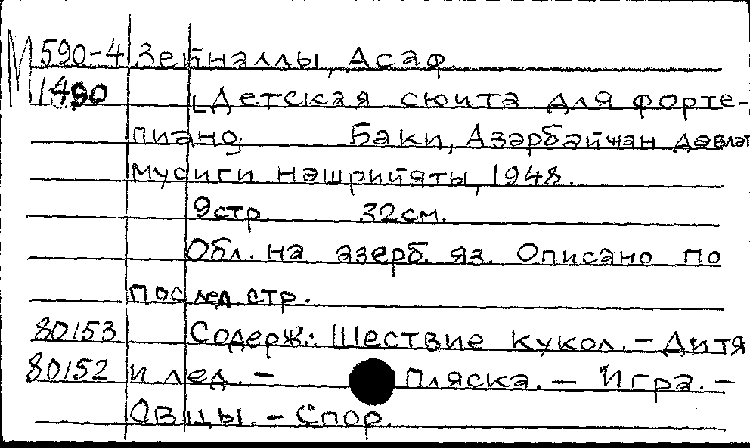 М 590-4 Зейналлы, Асаф
1490 [Детская сюита для форте-
пиано. Баки, Азәрбайчан дәвләт
мусиги нәшрийяты, 1948.
9стр 32см.
Обл. на азерб. яз. Описано по
послед. стр.
80153 Содерж.: Шествие кукол. - Дитя
80152 и лед. - Пляска. - Игра. -
Овцы. - Спор.